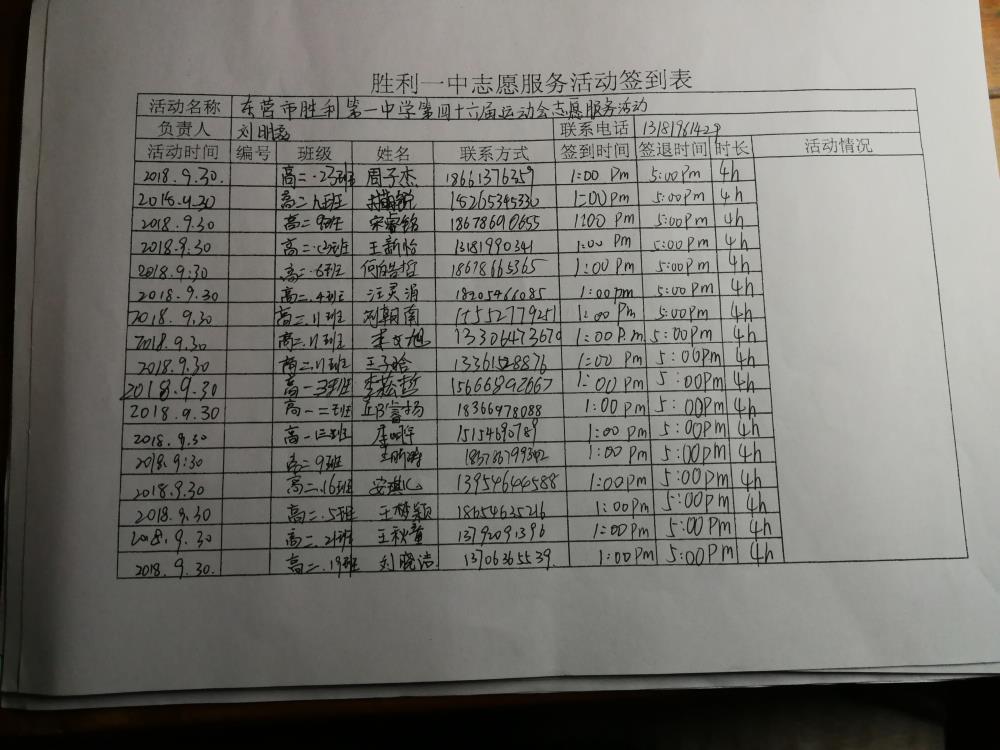 胜利一中志愿服务活动签到表
活动名称 东营市胜利第一中学第四十六届运动会志愿服务活动
负责人 刘明 联系电话 13181961429
活动时间 编号 班级 姓名 联系方式 签到时间 签退时间 时长 活动情况
2018.9.30. 高二.23班 周子杰 18661376359 1:00 Pm 5:00Pm 4h
2018.9.30 高二 15265345330 1:00Pm 5:00Pm 4h
2018.9.30 高二9班 宋睿铭 18678690655 1:00 Pm 5:00Pm 4h
2018.9.30 高二 王新怡 13181990341 1:00 Pm 5:00Pm 4h
2018.9.30 高二.6班 何皓哲 18678665365 1:00 Pm 5:00Pm 4h
2018.9.30 高二.4班 汪灵涓 18205466085 1:00pm 5:00Pm 4h
2018.9.30 高二.11班 刘朝南 15552779251 1:00 Pm 5:00Pm 4h
2018.9.30. 高二.11班 李文旭 13306473670 1:00 P.m 5:00Pm 4h
2018.9.30 高二.11班 王子晗 13361528876 1:00 Pm 5:00Pm 4h
2018.9.30 高一 李崧哲 15666892667 1:00 Pm 5:00Pm 4h
2018.9.30 高一 邱睿扬 18366478088 1:00 Pm 5:00Pm 4h
2018.9.30 高一 15154690789 1:00 Pm 5:00Pm 4h
2018.9.30 高二9班 1:00 Pm 5:00Pm 4h
2018.9.30 高二.16班 安琪心 13954644588 1:00Pm 5:00Pm 4h
2018.9.30 高二.5班 王梦颖 18654635216 1:00 Pm 5:00Pm 4h
2018.9.30 高二.21班 王秋童 13792091396 1:00Pm 5:00Pm 4h
2018.9.30. 高二.19班 刘晓洁 13706365539. 1:00Pm 5:00Pm 4h